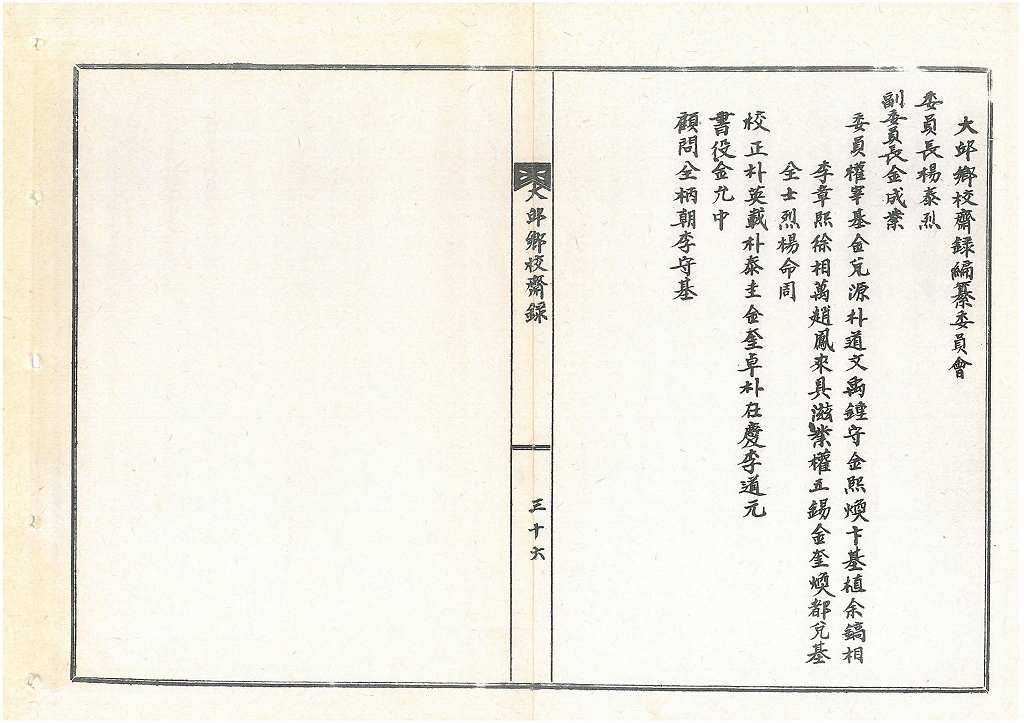 大邱鄉校齋録編纂委員會
委員長楊泰烈
副委員長金成業
委員權寧基金兌源朴道文禹鍾守金熙煥卞基植余鎬相
李章熙徐相萬趙鳳來具滋業權五錫金奎煥都兌基
全士烈楊命周
校正朴英載朴泰圭金奎卓朴在慶李道元
書役金允中
顧問全柄朝李守基
大邱鄉校齋録
三十六